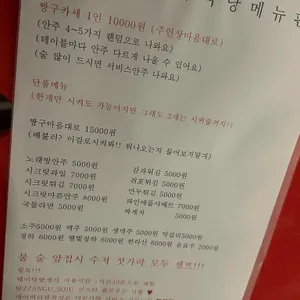 메뉴판
짱구카세 1인 10000원 (주인장마음대로)
(안주 4~5가지 랜덤으로 나와요)
(테이블마다 안주 다르게 나올 수 있어요)
(술 많이 드시면 서비스안주 나와요)
단품메뉴
(한개만 시켜도 가능하지만 그래도 2개는 시켜줄꺼지?)
짱구마음대로 15000원
(배불러? 이걸로시켜봐!! 뭐나오는지 물어보지말긔)
노래방안주 5000원
시크릿과일 7000원
시크릿튀김 7000원
마른안주 8000원
국물라면 5000원
감자튀김 5000원
쥐포튀김 5000원
만두튀김 5000원
파인애플샤베트 7000원
황도 5000원
소주5000원 맥주 5000원 생맥주 5000원 막걸리5000원
청하 6000원 별빛청하 6000원 한라산 6000원 음료수 2000원
물 술 앞접시 수저 젓가락 모두 셀프!!!
필독!!!
@ZZANGU_SOJU